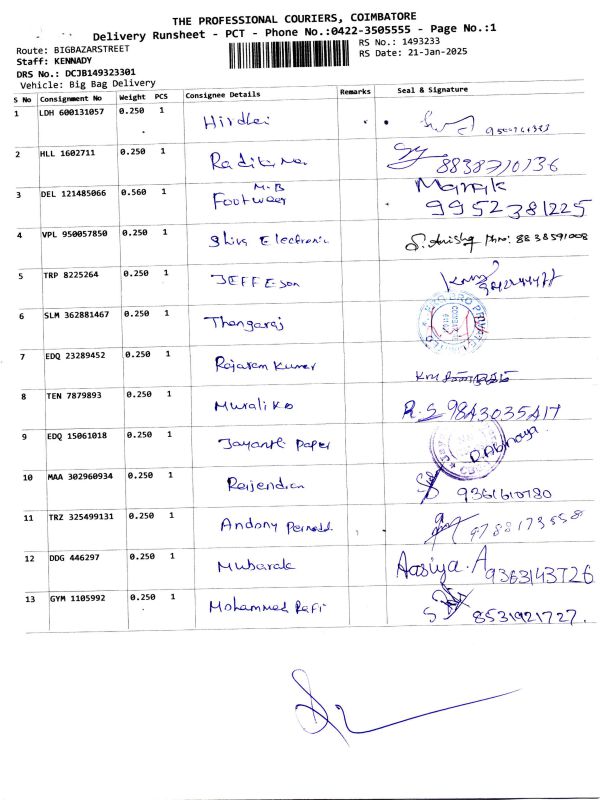 THE PROFESSIONAL COURIERS, COIMBATORE
Delivery Runsheet - PCT - Phone No.:0422-3505555 - Page No.:1
Route: BIGBAZARSTREET RS No.: 1493233
Staff: KENNADY RS Date: 21-Jan-2025
DRS No.: DCJB149323301
Vehicle: Big Bag Delivery
S No Consignment No Weight PCS Consignee Details Remarks Seal & Signature
1 LDH 600131057 0.250 1
2 HLL 1602711 0.250 1 8838710136
3 DEL 121485066 0.560 1 M.B Footwear Manik
9952381225
4 VPL 950057850 0.250 1 Shiva Electronic
5 TRP 8225264 0.250 1 JEFFEson
6 SLM 362881467 0.250 1 Thangaraj
7 EDQ 23289452 0.250 1 Rajaram Kumar
8 TEN 7879893 0.250 1 R.S 9843035417
9 EDQ 15061018 0.250 1 Jayanthi Paper D.Abinaya.
10 MAA 302960934 0.250 1 Rajendran 9361610780
11 TRZ 325499131 0.250 1 Andony 9788173558
12 DDG 446297 0.250 1 Mubarak Aasiya.A 9363143726
13 GYM 1105992 0.250 1 Mohammed Rafi 8531921727.